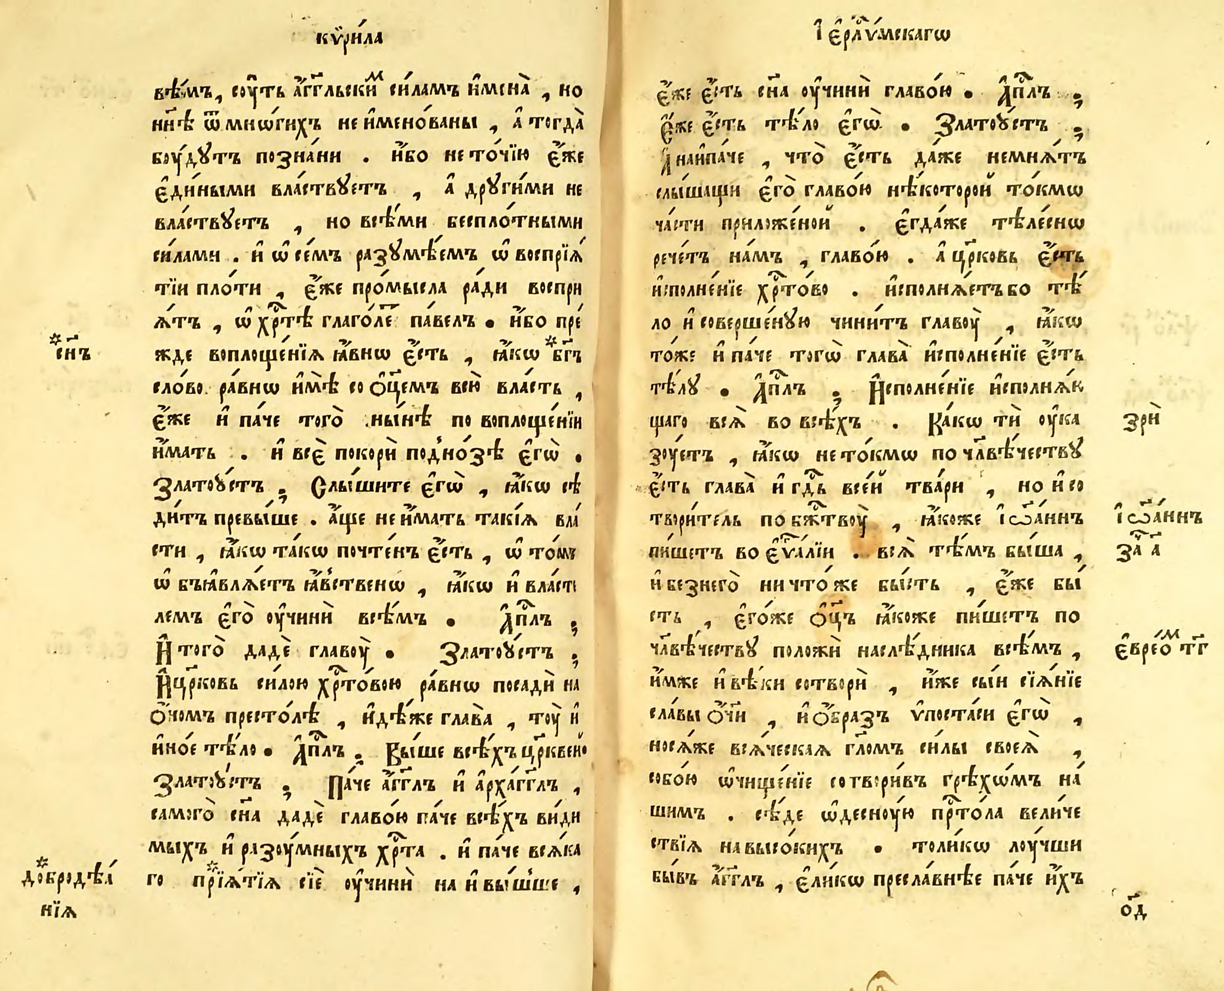 кѷри́ла
вѣ́мъ, сꙋ́ть а҆́гг҃льски́ⷨ си́ламъ и҆мена̀ , но
нн҃ѣ ѿ мнѡ́гихъ не и҆менованы , а҆ тогда̀
бꙋ́дꙋтъ позна́ни . и҆́бо не то́чїю є҆́же
є҆ди́ными вла́ствꙋетъ , а҆ дрꙋги́ми не
вла́ствꙋетъ , но всѣ́ми бесплѡ́тными
си́лами . и҆ ѡ҆ се́мъ разꙋмѣ́емъ ѡ҆ воспрїѧ́
тїи пло́ти , є҆́же про́мысла ра́ди воспри
ѧ́тъ , ѡ҆ хрⷭ҇тѣ̀ глаго́ле па́велъ . и҆́бо пре́
жде воплоще́нїѧ ꙗ҆́внѡ є҆́сть , ꙗ҆́кѡ *бг҃ъ
сло́во ра́внѡ и҆мѣ̀ со ѻ҆ц҃е́мъ всю̀ вла́сть ,
є҆́же и҆ па́че того̀ ны́нѣ по воплоще́нїи
и҆́мать . и҆ всѐ покорѝ подно́зѣ є҆гѡ̀ .
Златоꙋ́стъ ; Слы́шите є҆гѡ̀ , ꙗ҆́кѡ сѣ
ди́тъ превы́ше . а҆́ще не и҆́мать такі́ѧ вла́
сти , ꙗ҆́кѡ та́кѡ почте́нъ є҆́сть , ѡ҆ то́мъ
ѡ҆бъꙗвлѧ́етъ ꙗ҆́вственѡ , ꙗ҆́кѡ и҆ власти́
лемъ є҆го̀ ᲂу҆чинѝ всѣ́мъ . А҆пⷭ҇лъ ;
И҆ того̀ дадѐ главоꙋ̀ . Златоꙋ́стъ ;
И҆ цр҃ковь си́лою хрⷭ҇то́вою ра́внѡ посадѝ на
ѻ҆́номъ престо́лѣ , и҆дѣ́же глава̀ , тоꙋ̀ и҆
и҆но́е тѣ́ло . А҆пⷭ҇лъ ; Вы́ше всѣ́хъ цр҃кве́й
Златоꙋ́стъ ; Па́че а҆́гг҃лъ и҆ а҆рха́гг҃лъ ,
самого̀ сн҃а дадѐ главо́ю па́че всѣ́хъ ви́ди
мыхъ и҆ разꙋ́мныхъ хрⷭ҇та̀ . и҆ па́че всѧ́ка
го *прїѧ́тїѧ сїѐ ᲂу҆чинѝ на и҆ вы́шше ,
*сн҃ъ
*добродѣѧ́
нїѧ
І҆ерⷭ҇ли́мскагѡ
є҆́же є҆́сть сн҃а ᲂу҆чинѝ главо́ю . А҆пⷭ҇лъ ;
є҆́же є҆́сть тѣ́ло є҆гѡ̀ . Златоꙋ́стъ ;
А҆ наипа́че , что̀ є҆́сть да́же не мнѧ́тъ
слы́шащи є҆го̀ главо́ю нѣ́которой то́кмѡ
ча́сти приложе́ной . є҆гда́же тѣле́снѡ
рече́тъ на́мъ , главо́ю . а҆ цр҃ковь є҆́сть
и҆сполне́нїе хрⷭ҇то́во . и҆сполнѧ́етъ бо тѣ́
ло и҆ соверше́нꙋю чини́тъ главоꙋ̀ , ꙗ҆́кѡ
то́же и҆ па́че тогѡ̀ глава̀ и҆сполне́нїе є҆́сть
тѣ́лꙋ . А҆пⷭ҇лъ ; И҆сполне́нїе и҆сполнѧ́ю
щаго всѧ̀ во всѣ́хъ . Ка́кѡ тѝ ᲂу҆ка
зꙋ́етъ , ꙗ҆́кѡ не то́кмѡ по чл҃вѣ́честву
є҆́сть глава̀ и҆ гдⷭ҇ь все́й тва́ри , но и҆ со
твори́тель по бж҃твоꙋ̀ , ꙗ҆́коже і҆ѡа́ннъ
пи́шетъ во є҆ѵⷢ҇а́лїи . всѧ̀ тѣ́мъ бы́ша ,
и҆ безнего̀ ничто́же бы́сть , є҆́же бы́
сть , є҆го́же ѻ҆ц҃ъ ꙗ҆́коже пи́шетъ по
чл҃вѣ́честву положѝ наслѣ́дника всѣ́мъ ,
и҆́мже и҆ вѣ́ки сотворѝ , и҆́же сы́и сїѧ́нїе
сла́вы ѻ҆́ч҃и , и҆ ѻ҆́бразъ ѵ҆поста́си є҆гѡ̀ ,
носѧ́же всѧ́ческаѧ гл҃омъ си́лы своеѧ̀ ,
собо́ю ѡ҆чище́нїе сотвори́въ грѣхѡ́мъ на́
шимъ . сѣ́де ѡ҆десноꙋ́ю прⷭ҇то́ла вели́че
ствїѧ на высо́кихъ . толи́кѡ лꙋ́чши
бы́въ а҆́гг҃лъ , є҆ли́кѡ пресла́внѣе па́че и҆́хъ
зрѝ
І҆ѡа́ннъ
заⷱ҇ а҃
є҆вре́ѡⷨ тг҃
ѻ҆д